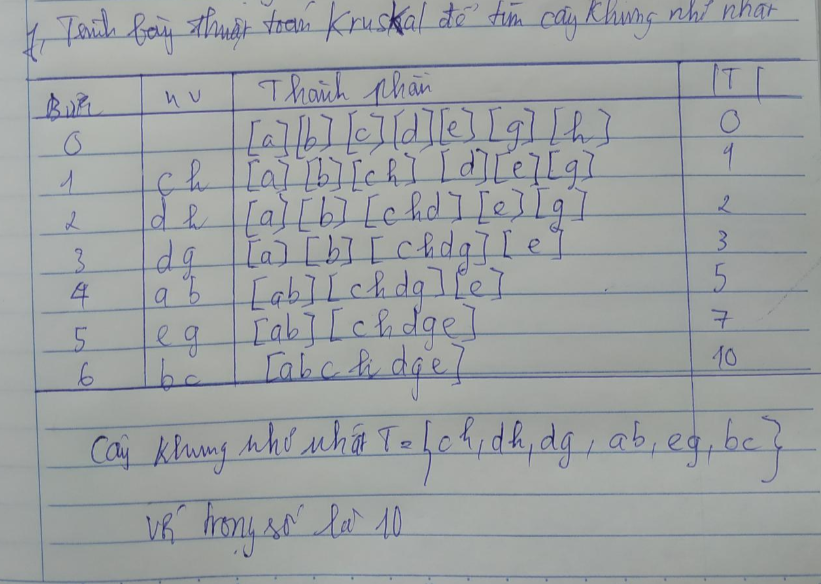 1, Trình bày thuật toán Kruskal để tìm cây khung nhỏ nhất
Bước uv Thành phần |T|
0 [a][b][c][d][e][g][h] 0
1 ch [a][b][ch][d][e][g] 1
2 dh [a][b][chd][e][g] 2
3 dg [a][b][chdg][e] 3
4 ab [ab][chdg][e] 5
5 eg [ab][chdge] 7
6 bc [abchdge] 10
Cây khung nhỏ nhất T = {ch, dh, dg, ab, eg, bc}
với trọng số là 10